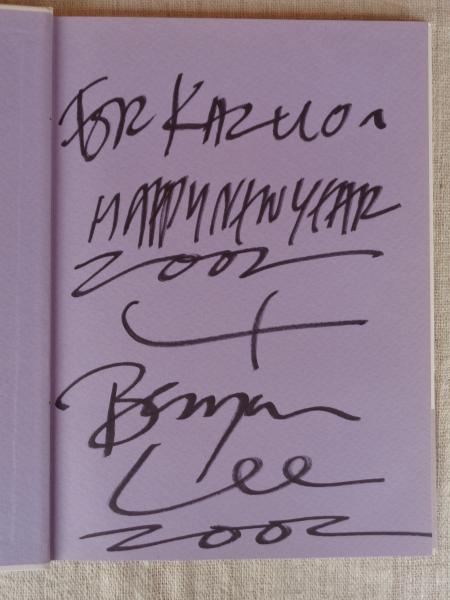 FOR KAZUO
HAPPY NEW YEAR
2002
Benjamin
Lee
2002